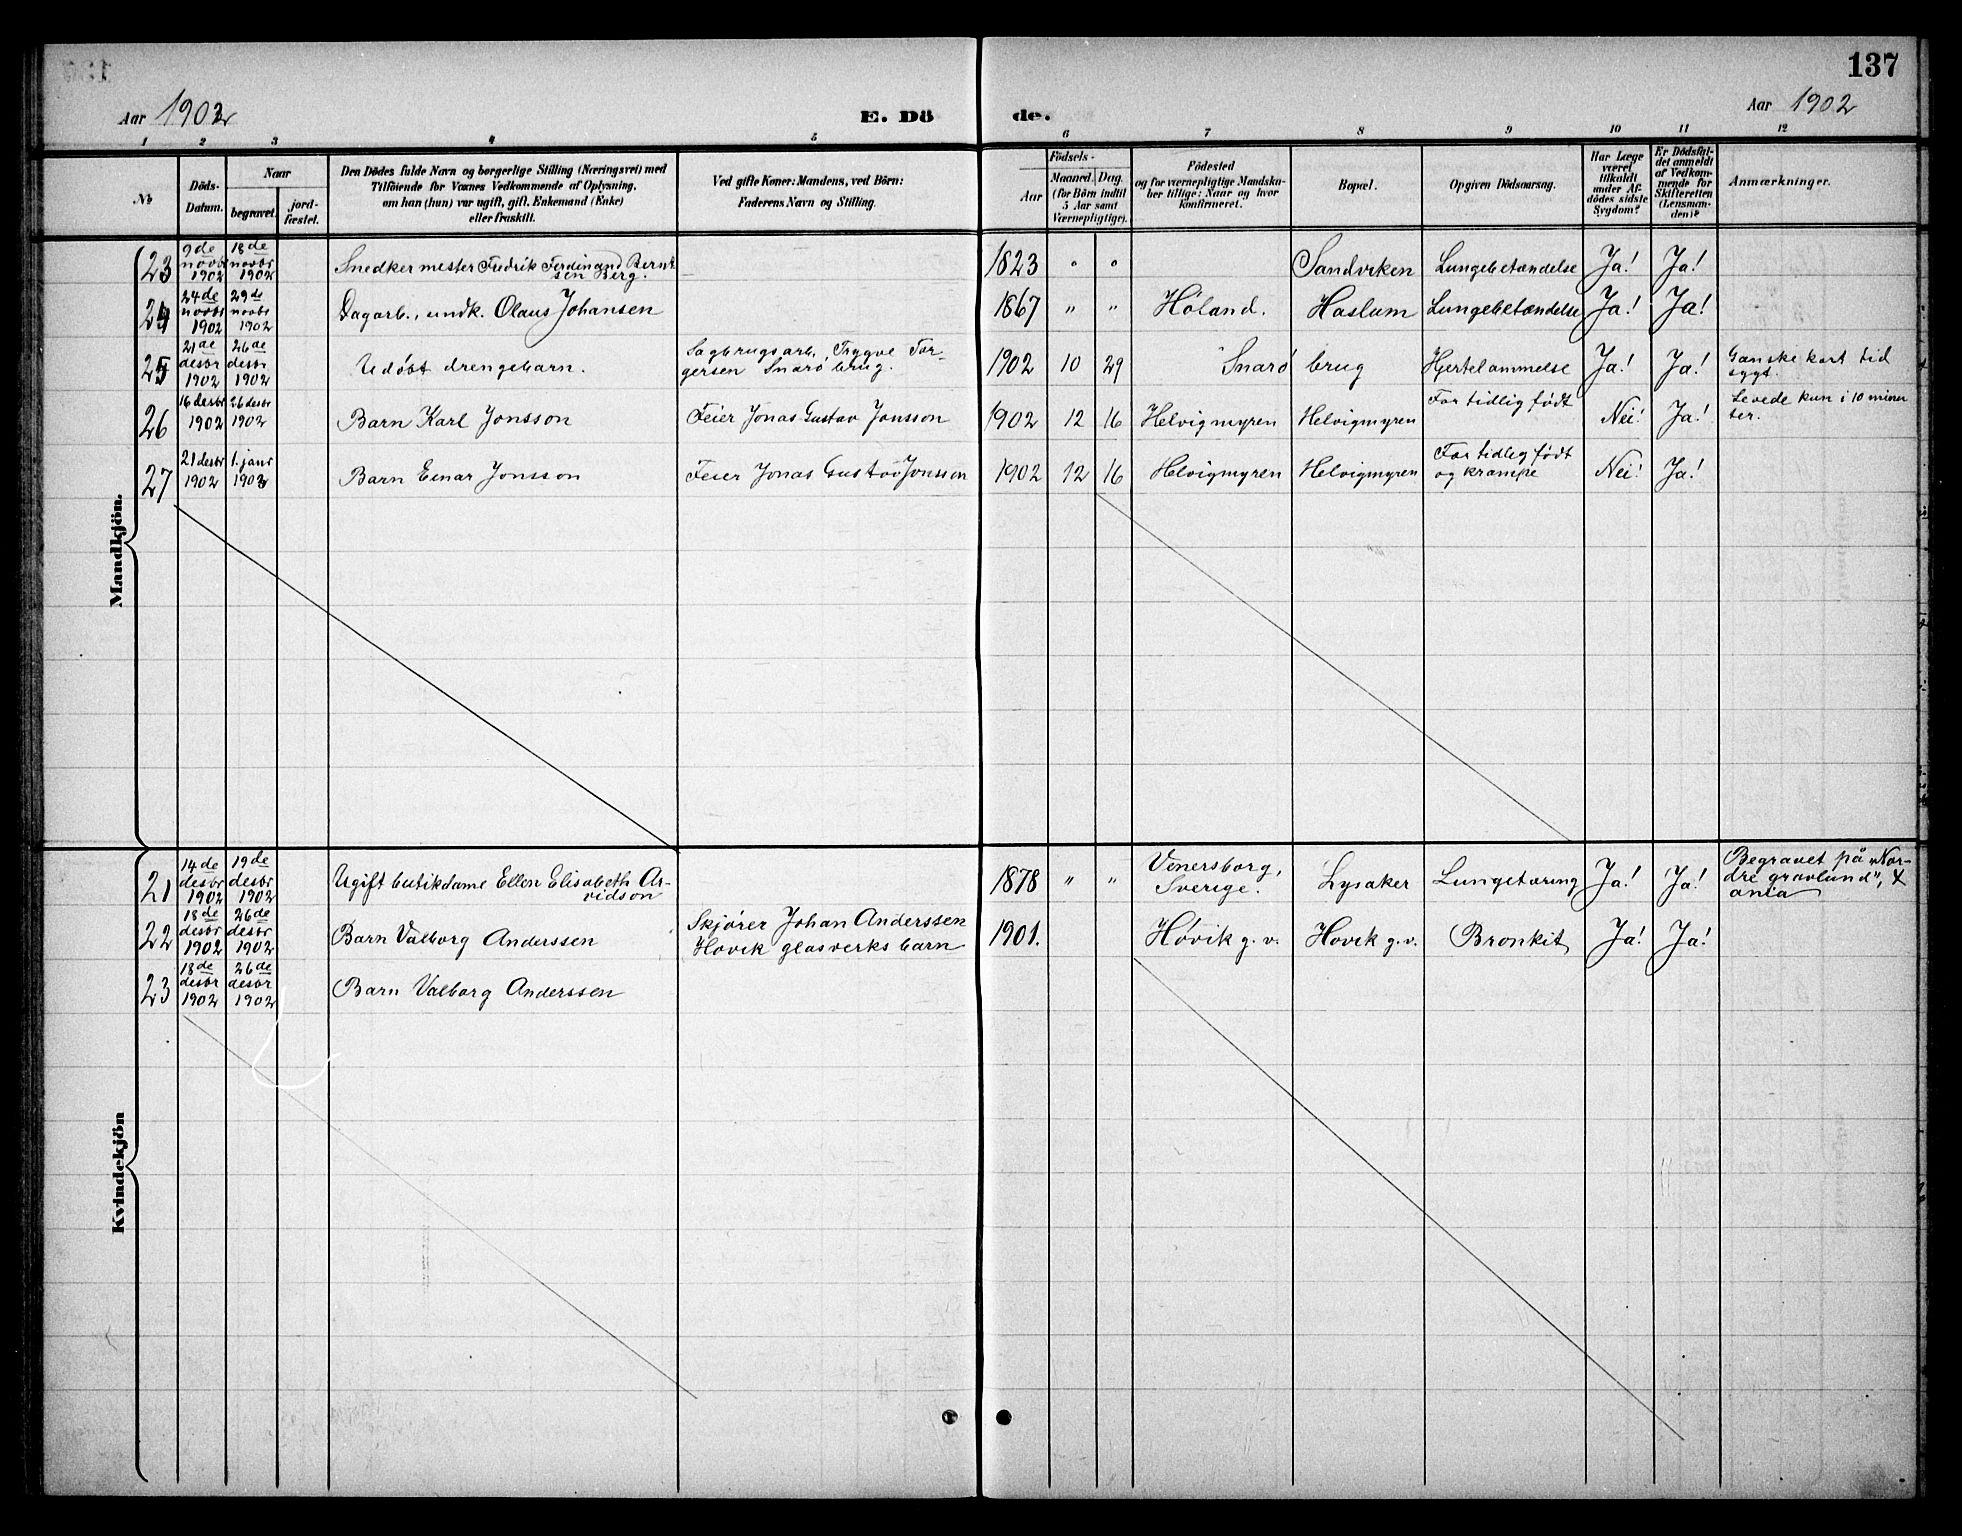 137
Aar 1902
E. Dö
de.
Aar 1902
1 2 3 4 5 6 7 8 9 10 11 12
№
Döds-
Datum.
Naar
begravet.
jord-
fæstet.
Den Dödes fulde Navn og borgerlige Stilling (Næringsvei) med
Tilföiende for Voxnes Vedkommende af Oplysning,
om han (hun) var ugift, gift, Enkemand (Enke)
eller fraskilt.
Ved gifte Koner: Mandens, ved Börn:
Faderens Navn og Stilling.
Födsels-
Aar
Maaned. Dag.
(for Börn indtil
5 Aar samt
Værnepligtige).
Födested
og for værnepligtige Mandska-
ber tillige: Naar og hvor
konfirmeret.
Bopæl.
Opgiven Dödsaarsag.
Har Læge
været
tilkaldt
under Af-
dödes sidste
Sygdom?
Er Dödsfal-
det anmeldt
af Vedkom-
mende for
Skifteretten
(Lensman-
den)?
Anmærkninger.
Mandkjön.
23 9de novbr 1902 18de novbr 1902 Snedkermester Fredrik Ferdinand Bernt
sen Berg. 1823 " " Sandviken Lungebetændelse Ja! Ja!
24 24de novbr 1902 29de novbr 1902 Dagarb., undk. Olaus Johansen 1867 " " Høland. Haslum Lungebetændelse Ja! Ja!
25 21de desbr 1902 26de desbr 1902 Udøbt drengebarn. Sagbrugsarb. Trygve Tor-
gersen Snarø brug. 1902 10 29 Snarø brug Hjertelammelse Ja! Ja! Ganske kort tid
sygt.
26 16 desbr 1902 26 desbr 1902 Barn Karl Jonsson Feier Jonas Gustav Jonsson 1902 12 16 Helvigmyren Helvigmyren For tidlig født Nei! Ja! Levede kun i 10 minut
ter.
27 21 desbr 1902 1. janr 1903 Barn Einar Jonsson Feier Jonas Gustav Jonsson 1902 12 16 Helvigmyren Helvigmyren For tidlig født
og krampe Nei! Ja!
Kvindekjön
21 14de desbr 1902 19de desbr 1902 Ugift butikdame Ellen Elisabeth Ar-
vidson 1878 " " Venersborg,
Sverige. Lysaker Lungetæring Ja! Ja! Begravet på „Nor-
dre gravlund", X
ania
22 18de desbr 1902 26de desbr 1902 Barn Valborg Anderssen Skjører Johan Anderssen
Høvik glasverks barn 1901. Høvik g. v. Høvik g. v. Bronkit Ja! Ja!
23 18de desbr 1902 26de desbr 1902 Barn Valborg Anderssen